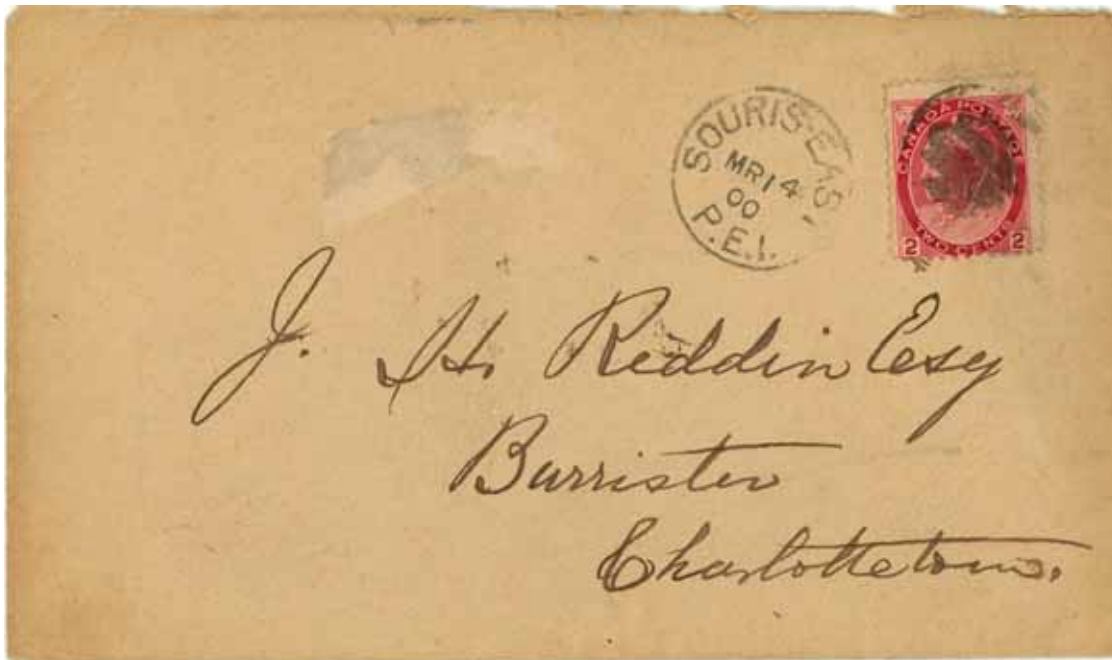 SOURIS-EAS
MR 14
00
P.E.I.
CANADA POSTAGE
2 TWO CENTS 2
J. H. Reddin Esq
Barrister
Charlottetown.